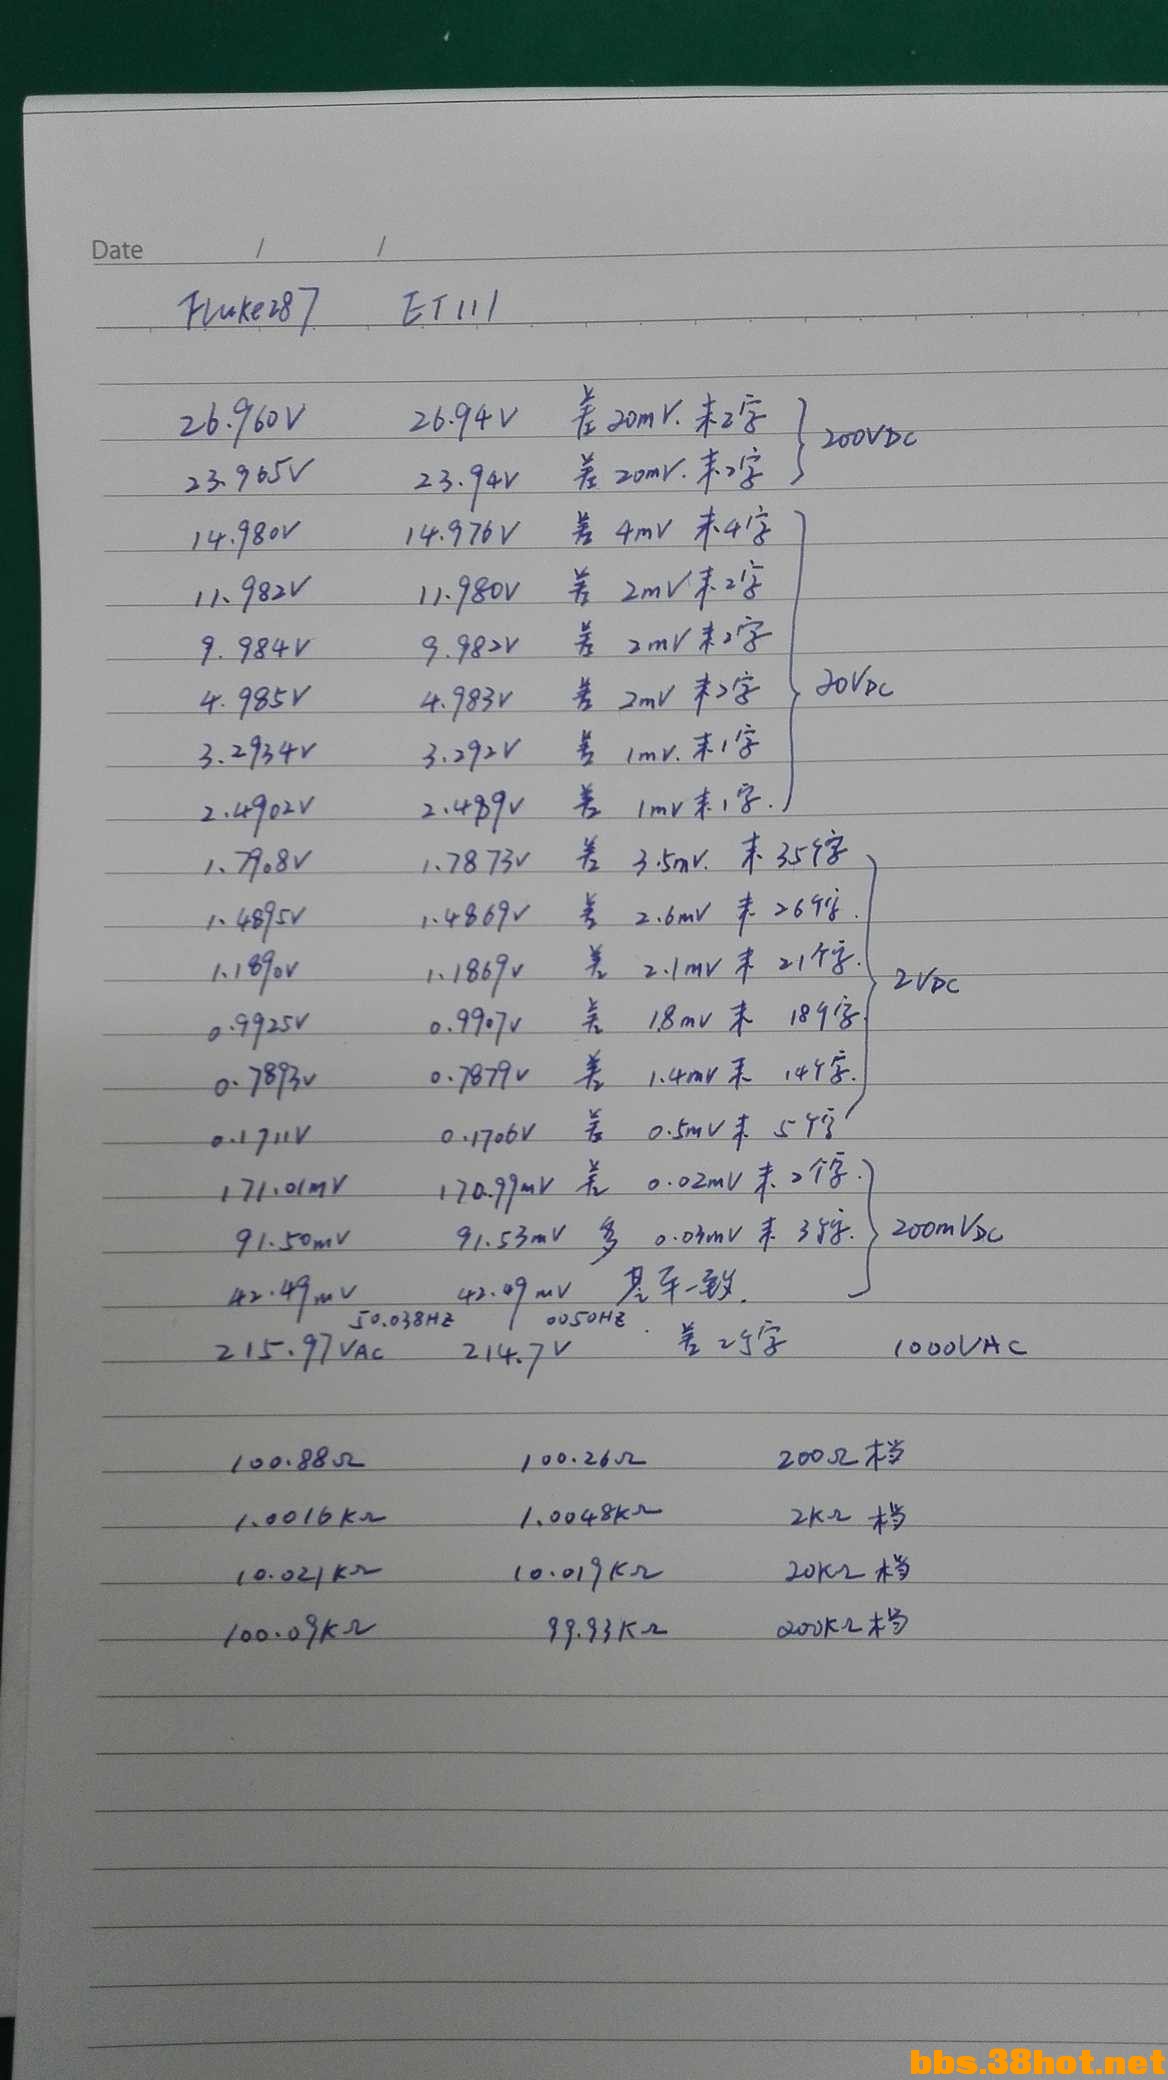 Date / /
Fluke287 ET111
26.960V 26.94V 差20mV. 末2字
23.965V 23.94V 差20mV. 末2字
200VDC
14.980V 14.976V 差 4mV 末4字
11.982V 11.980V 差 2mV 末2字
9.984V 9.982V 差 2mV 末2字
4.985V 4.983V 差 2mV 末2字
20VDC
3.2934V 3.292V 差 1mV. 末1字
2.4902V 2.489V 差 1mV 末1字.
1.7908V 1.7873V 差 3.5mV. 末 35个字
1.4895V 1.4869V 差 2.6mV 末 26个字.
1.1890V 1.1869V 差 2.1mV 末 21个字.
2VDC
0.9925V 0.9907V 差 1.8mV 末 18个字
0.7893V 0.7879V 差 1.4mV 末 14个字.
0.1711V 0.1706V 差 0.5mV 末 5个字
171.01mV 170.99mV 差 0.02mV 末 2个字.
91.50mV 91.53mV 多 0.03mV 末 3个字. 200mVDC
42.49mV 42.49mV 基本一致.
50.038HZ 0050HZ.
215.97VAC 214.7V 差2个字 1000VAC
100.88Ω 100.26Ω 200Ω档
1.0016KΩ 1.0048KΩ 2KΩ 档
10.021KΩ 10.019KΩ 20KΩ 档
100.09KΩ 99.93KΩ 200KΩ档
bbs.38hot.net